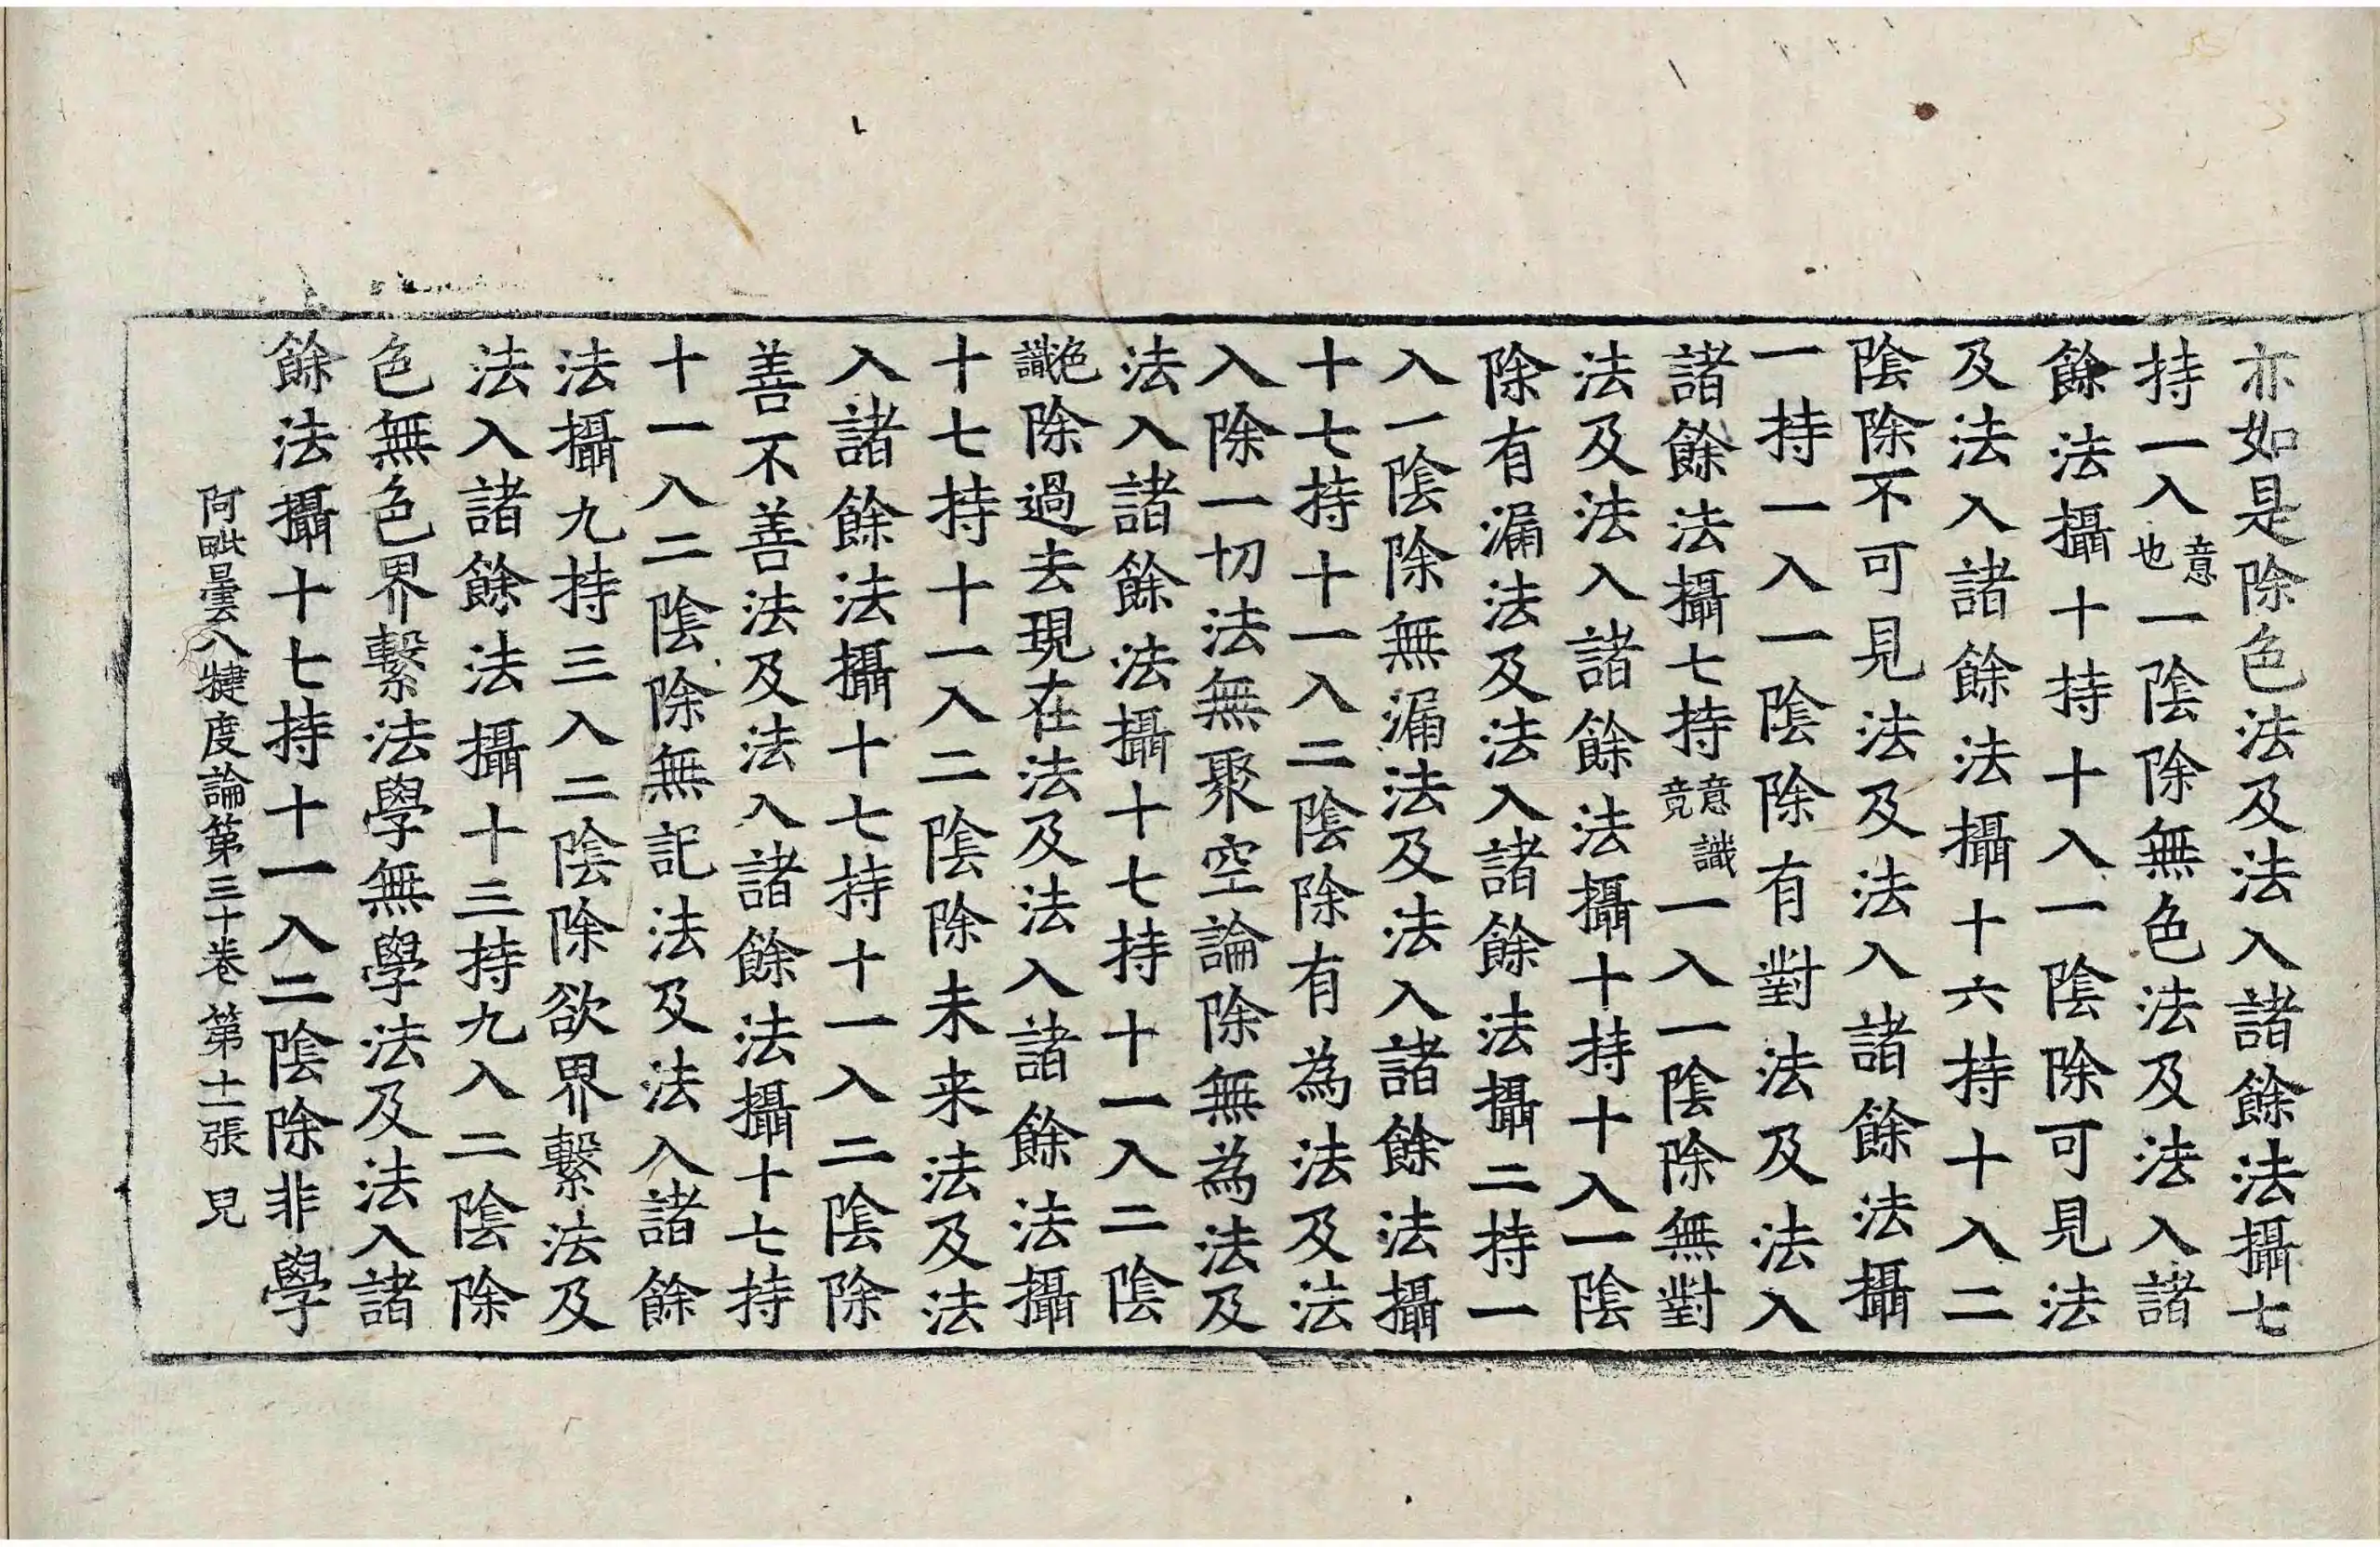 亦如是除色法及法入諸餘法攝七
持一入意也一陰除無色法及法入諸
餘法攝十持十入一陰除可見法
及法入諸餘法攝十六持十入二
陰除不可見法及法入諸餘法攝
一持一入一陰除有對法及法入
諸餘法攝七持意識竟一入一陰除無對
法及法入諸餘法攝十持十入一陰
除有漏法及法入諸餘法攝二持一
入一陰除無漏法及法入諸餘法攝
十七持十一入二陰除有為法及法
入除一切法無聚空論除無為法及
法入諸餘法攝十七持十一入二陰
色識除過去現在法及法入諸餘法攝
十七持十一入二陰除未来法及法
入諸餘法攝十七持十一入二陰除
善不善法及法入諸餘法攝十七持
十一入二陰除無記法及法入諸餘
法攝九持三入二陰除欲界繫法及
法入諸餘法攝十三持九入二陰除
色無色界繫法學無學法及法入諸
餘法攝十七持十一入二陰除非學
阿毗曇八犍度論第三十卷 第十二張 見